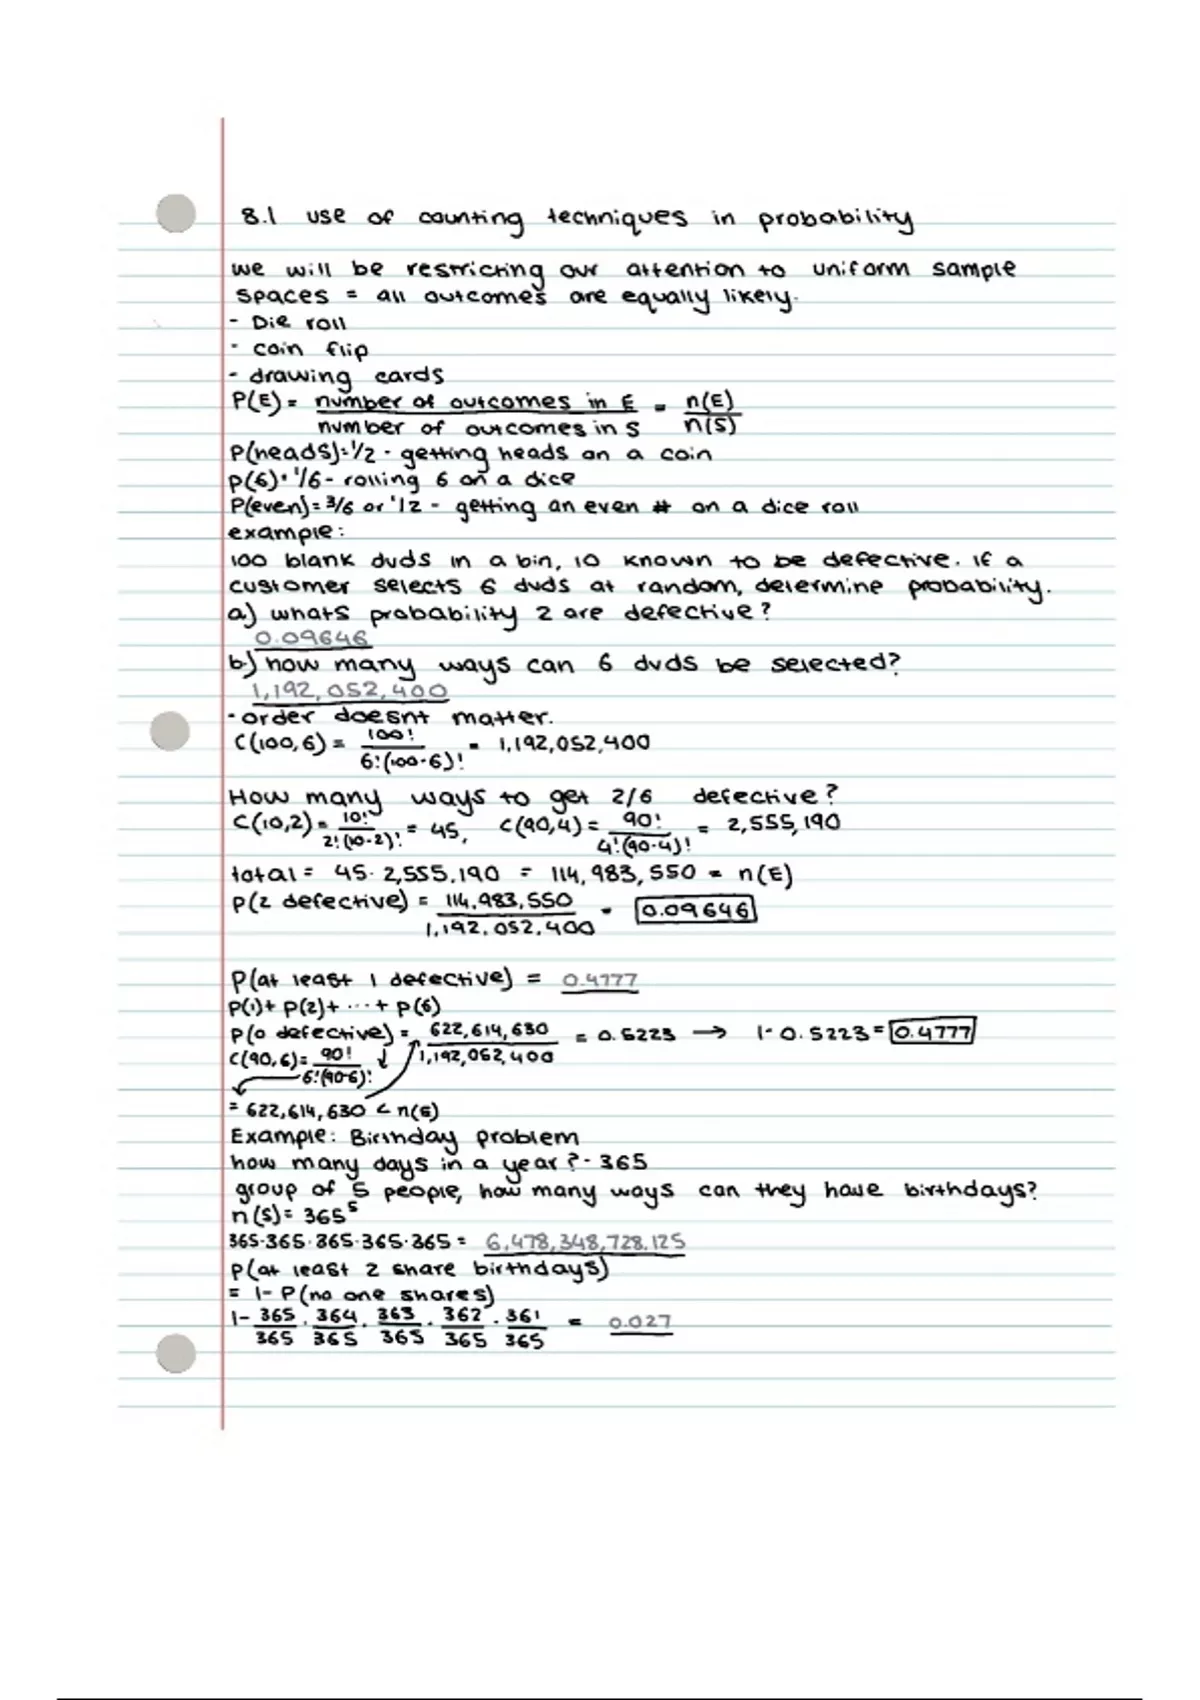 8.1 use of counting techniques in probability
we will be restricting our attention to uniform sample
spaces = all outcomes are equally likely.
- Die roll
- coin flip
- drawing cards
P(E) = number of outcomes in E / number of outcomes in S = n(E) / n(S)
P(heads) = 1/2 - getting heads on a coin
P(6) = 1/6 - rolling 6 on a dice
P(even) = 3/6 or 1/2 - getting an even # on a dice roll
example:
100 blank dvds in a bin, 10 known to be defective. If a
customer selects 6 dvds at random, determine probability.
a) whats probability 2 are defective?
0.09646
b) how many ways can 6 dvds be selected?
1,192,052,400
- order doesnt matter.
C(100,6) = 100! / 6!(100-6)! = 1,192,052,400
How many ways to get 2/6 defective?
C(10,2) = 10! / 2!(10-2)! = 45, C(90,4) = 90! / 4!(90-4)! = 2,555,190
total = 45 · 2,555,190 = 114,983,550 = n(E)
P(2 defective) = 114,983,550 / 1,192,052,400 = 0.09646
P(at least 1 defective) = 0.4777
P(1) + P(2) + ... + P(6)
P(0 defective) = 622,614,630 / 1,192,052,400 = 0.5223 → 1 - 0.5223 = 0.4777
C(90,6) = 90! / 6!(90-6)! ↓
= 622,614,630 < n(E)
Example: Birthday problem
how many days in a year? - 365
group of 5 people, how many ways can they have birthdays?
n(S) = 365⁵
365·365·365·365·365 = 6,478,348,728,125
P(at least 2 share birthdays)
= 1 - P(no one shares)
1 - 365/365 · 364/365 · 363/365 · 362/365 · 361/365 = 0.027